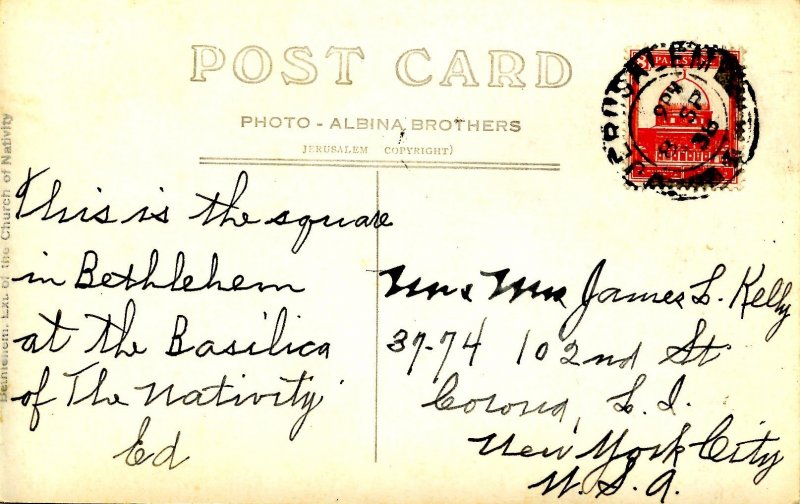 POST CARD
PHOTO - ALBINA BROTHERS
JERUSALEM COPYRIGHT)
Bethlehem. Ext. of the Church of Nativity
This is the square
in Bethlehem
at the Basilica
of The Nativity
Ed
JERUSALEM
SP
36
Mr & Mrs James L. Kelly
37-74 102nd St
Corona, L. I.
New York City
U.S.A.